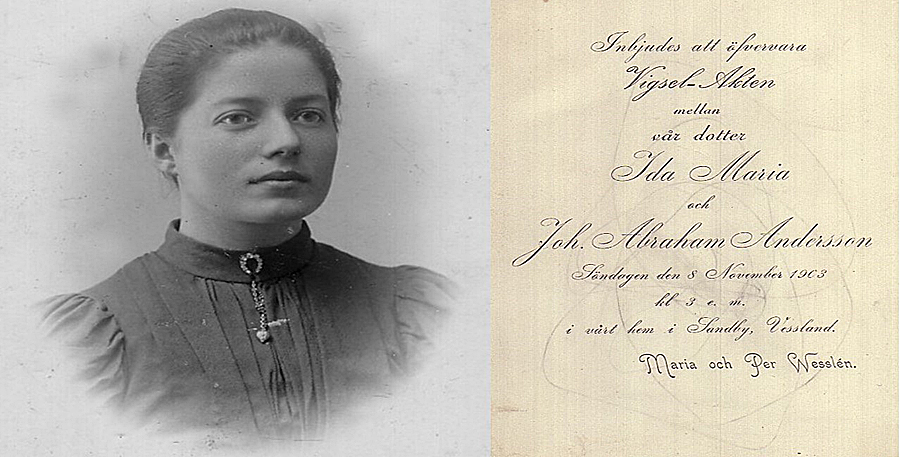 Inbjudes att öfvervara
Vigsel-Akten
mellan
vår dotter
Ida Maria
och
Joh. Abraham Andersson
Söndagen den 8 November 1903
kl 3 e. m.
i vårt hem i Sundby, Vessland.
Maria och Per Wesslén.